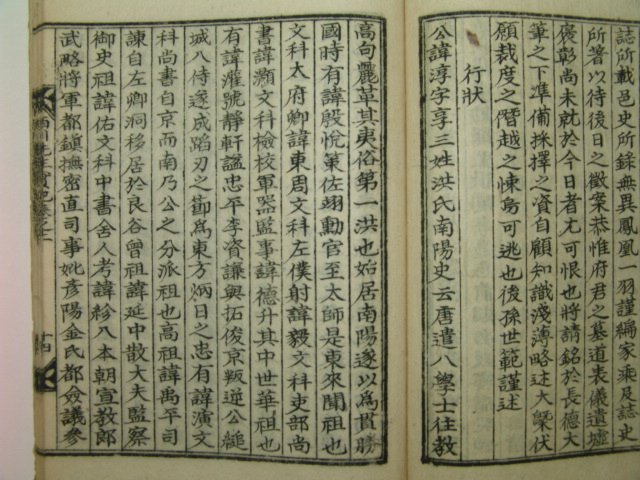 誌所載邑史所錄無異鳳凰一羽謹編家乘及誌史
所著以待後日之徵案恭惟府君之墓道表儀遺墟
褒彰尚未就於今日者尤可恨也將請銘於長德大
筆之下準備採擇之資自顧知識淺薄略述大槩伏
願裁度之僭越之悚烏可逃也後孫世範謹述
行狀
公諱淳字享三姓洪氏南陽史云唐遣八學士往教
高句麗革其夷俗第一洪也始居南陽遂以為貫勝
國時有諱殷悅策佐翊勳官至太師是東來聞祖也
文科太府卿諱東周文科左僕射諱毅文科吏部尚
書諱灝文科檢校軍器監事諱德升其中世華祖也
有諱灌號靜軒謚忠平李資謙與拓俊京叛逆公縋
城入侍遂成蹈刃之節為東方炳日之忠有諱演文
科尚書自京而南乃公之分派祖也高祖諱禹平司
諫自左卿洞移居於良谷曾祖諱延中散大夫監察
御史祖諱佑文科中書舍人考諱紾入本朝宣教郎
武略將軍都鎮撫密直司事妣彥陽金氏都僉議參
先生實記卷之一
十四